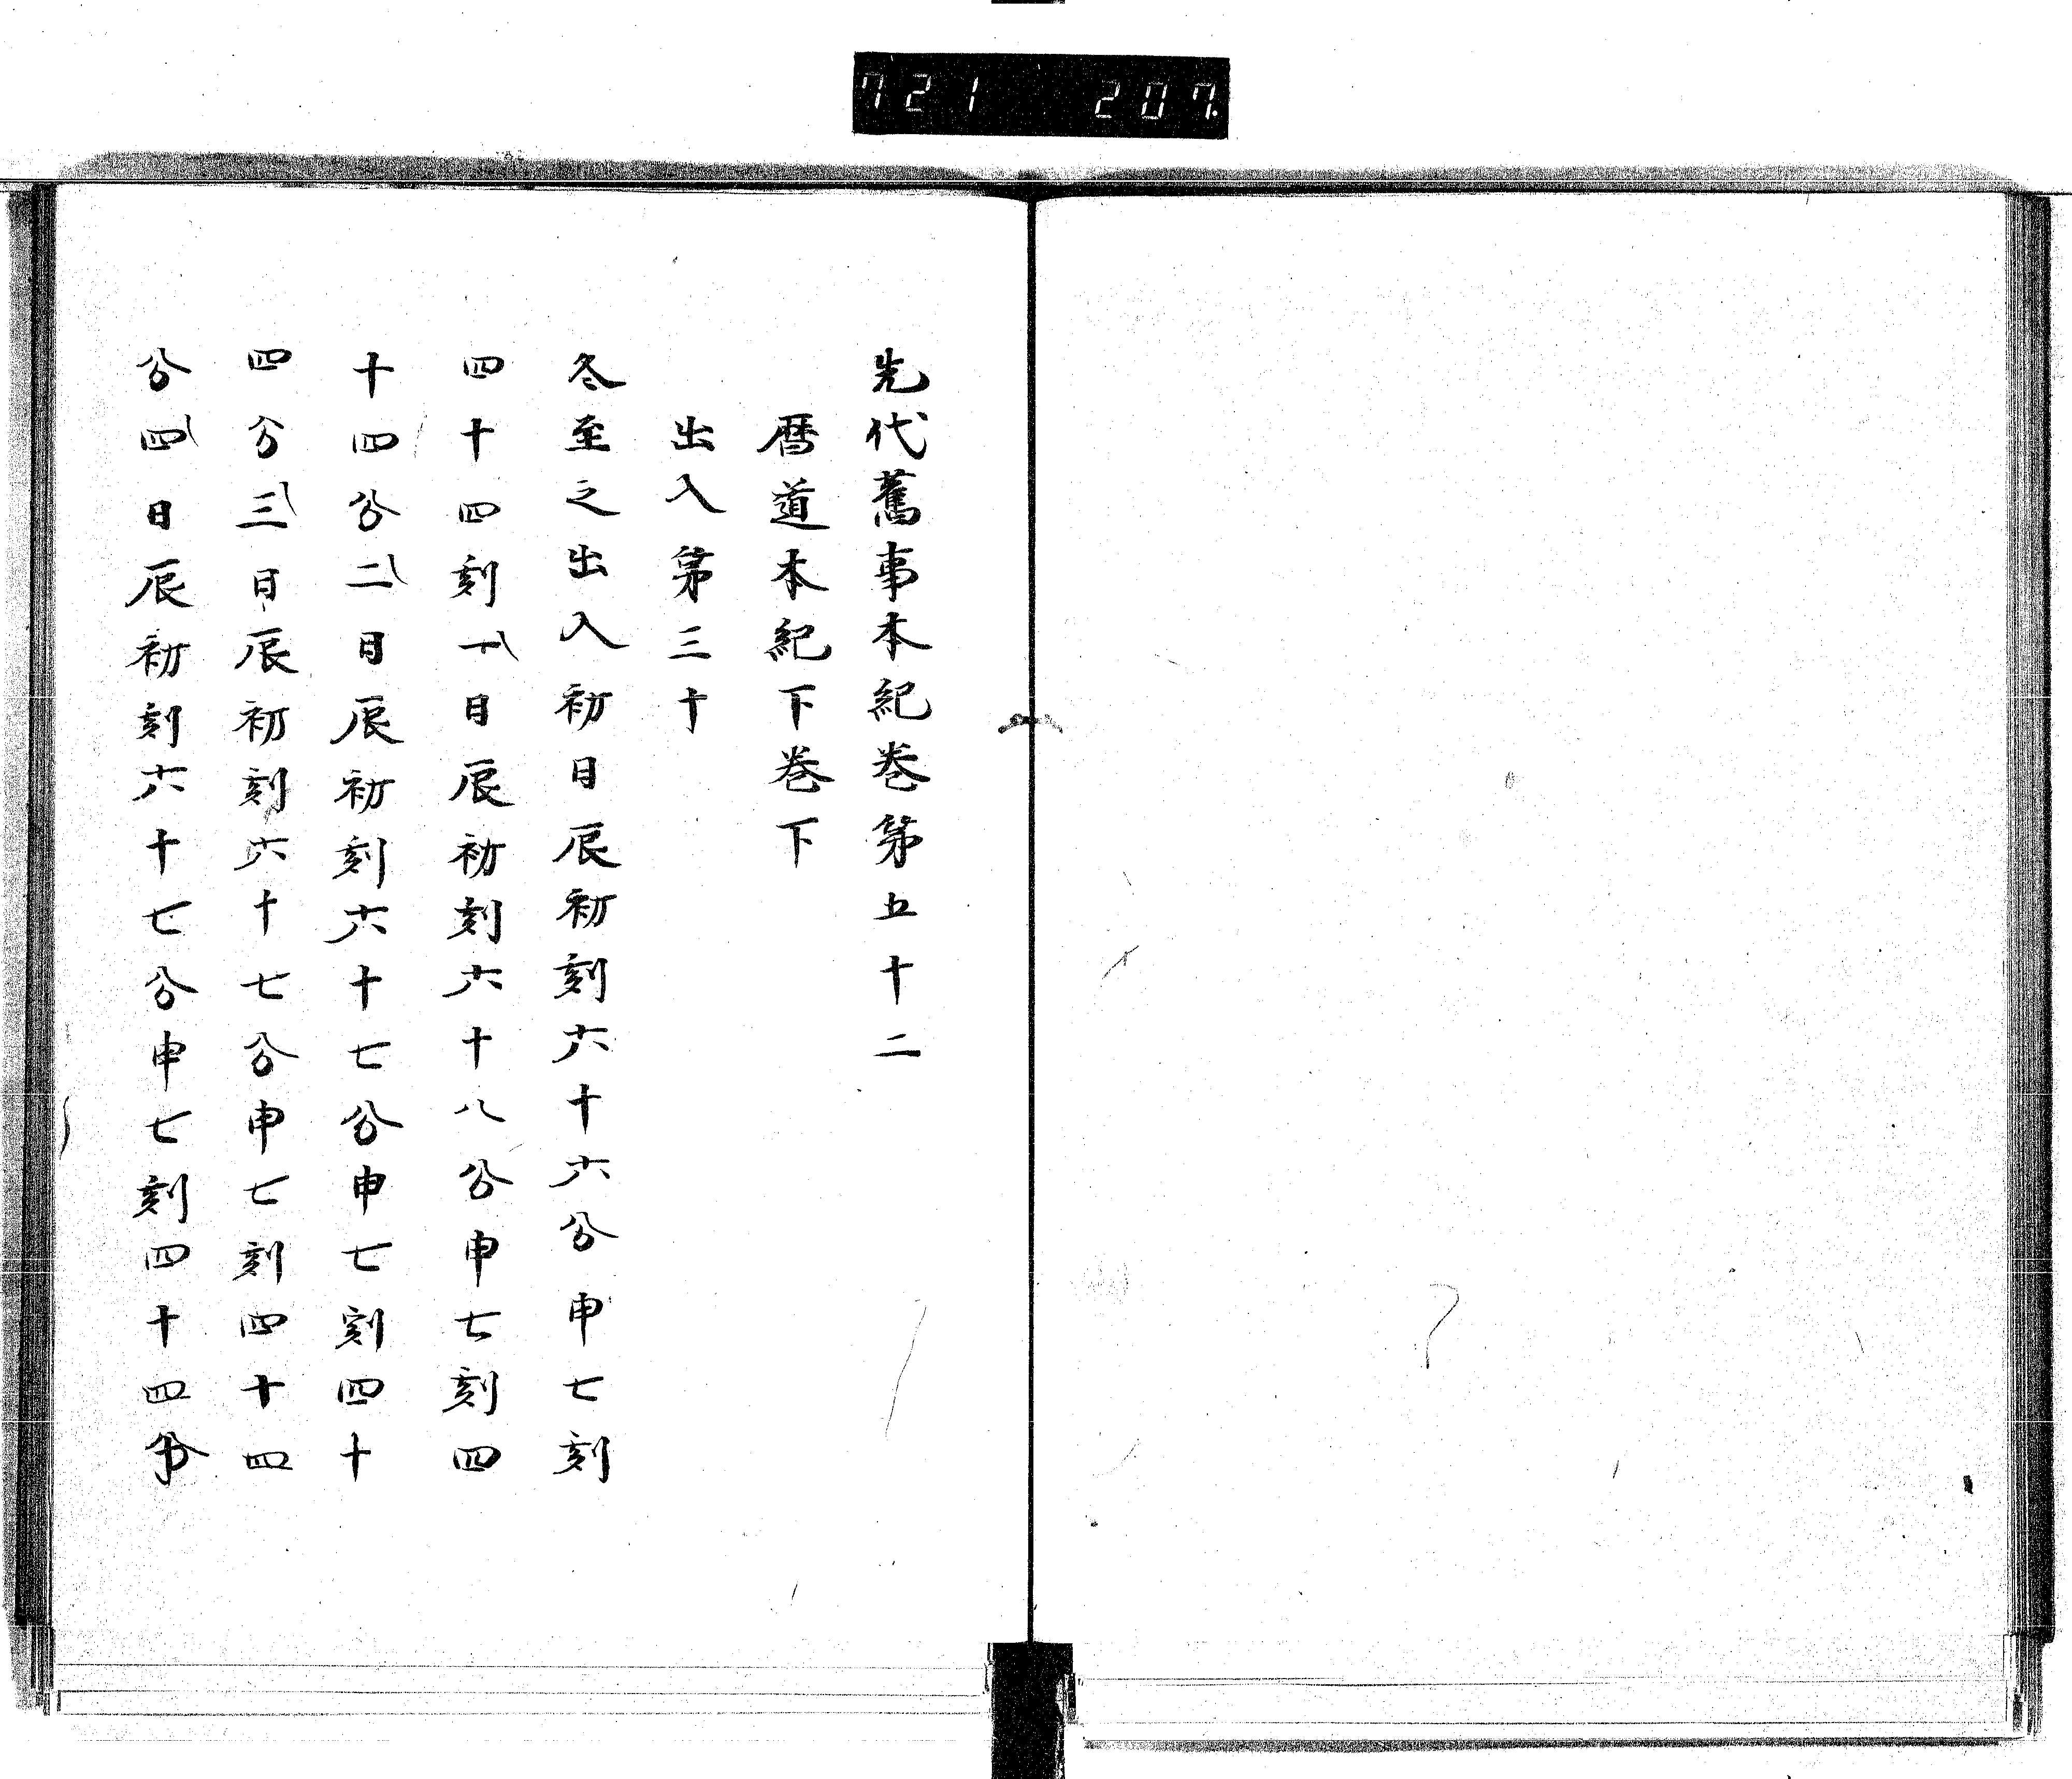 721 207
先代舊事本紀巻第五十二
暦道本紀下巻下
出入第三十
冬至之出入初日辰初刻六十六分申七刻
四十四刻一日辰初刻六十八分申七刻四
十四分二日辰初刻六十七分申七刻四十
四分三日辰初刻六十七分申七刻四十四
分四日辰初刻六十七分申七刻四十四分